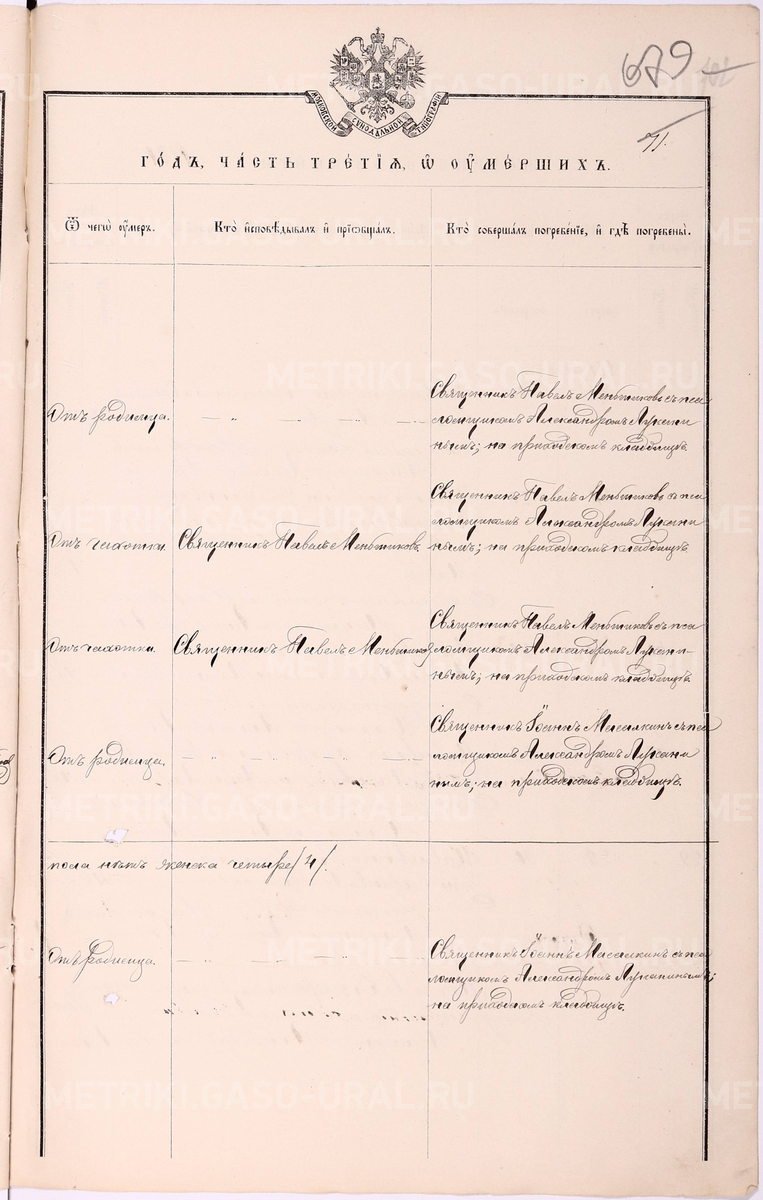 679
71.
МОСКОВСКОЙ СѴНОДАЛЬНОЙ ТИПОГРАФІИ
ГОДЪ, ЧАСТЬ ТРЕТІЯ, Ѡ ОУМЕРШИХЪ.
Ѿ чегѡ оумеръ.
Кто исповѣдывалъ и пріобщалъ.
Кто совершалъ погребеніе, и гдѣ погребены.
Отъ родимца.
Священникъ Павелъ Меньшиковъ съ пса
ломщикомъ Александромъ Лукани
нымъ; на приходскомъ кладбищѣ.
Отъ чахотки.
Священникъ Павелъ Меньшиковъ.
Священникъ Павелъ Меньшиковъ съ пса
ломщикомъ Александромъ Лукани
нымъ; на приходскомъ кладбищѣ.
Отъ чахотки.
Священникъ Павелъ Меньшиковъ
Священникъ Павелъ Меньшиковъ съ пса
ломщикомъ Александромъ Лукани-
нымъ; на приходскомъ кладбищѣ.
Отъ родимца.
Священникъ Іоаннъ съ пса
ломщикомъ Александромъ Лукани
нымъ; на приходскомъ кладбищѣ.
пола нѣтъ женска четыре /4/.
Отъ родимца.
Священникъ Іоаннъ съ пса
ломщикомъ Александромъ Луканинымъ;
на приходскомъ кладбищѣ.
METRIKI.GASO-URAL.RU